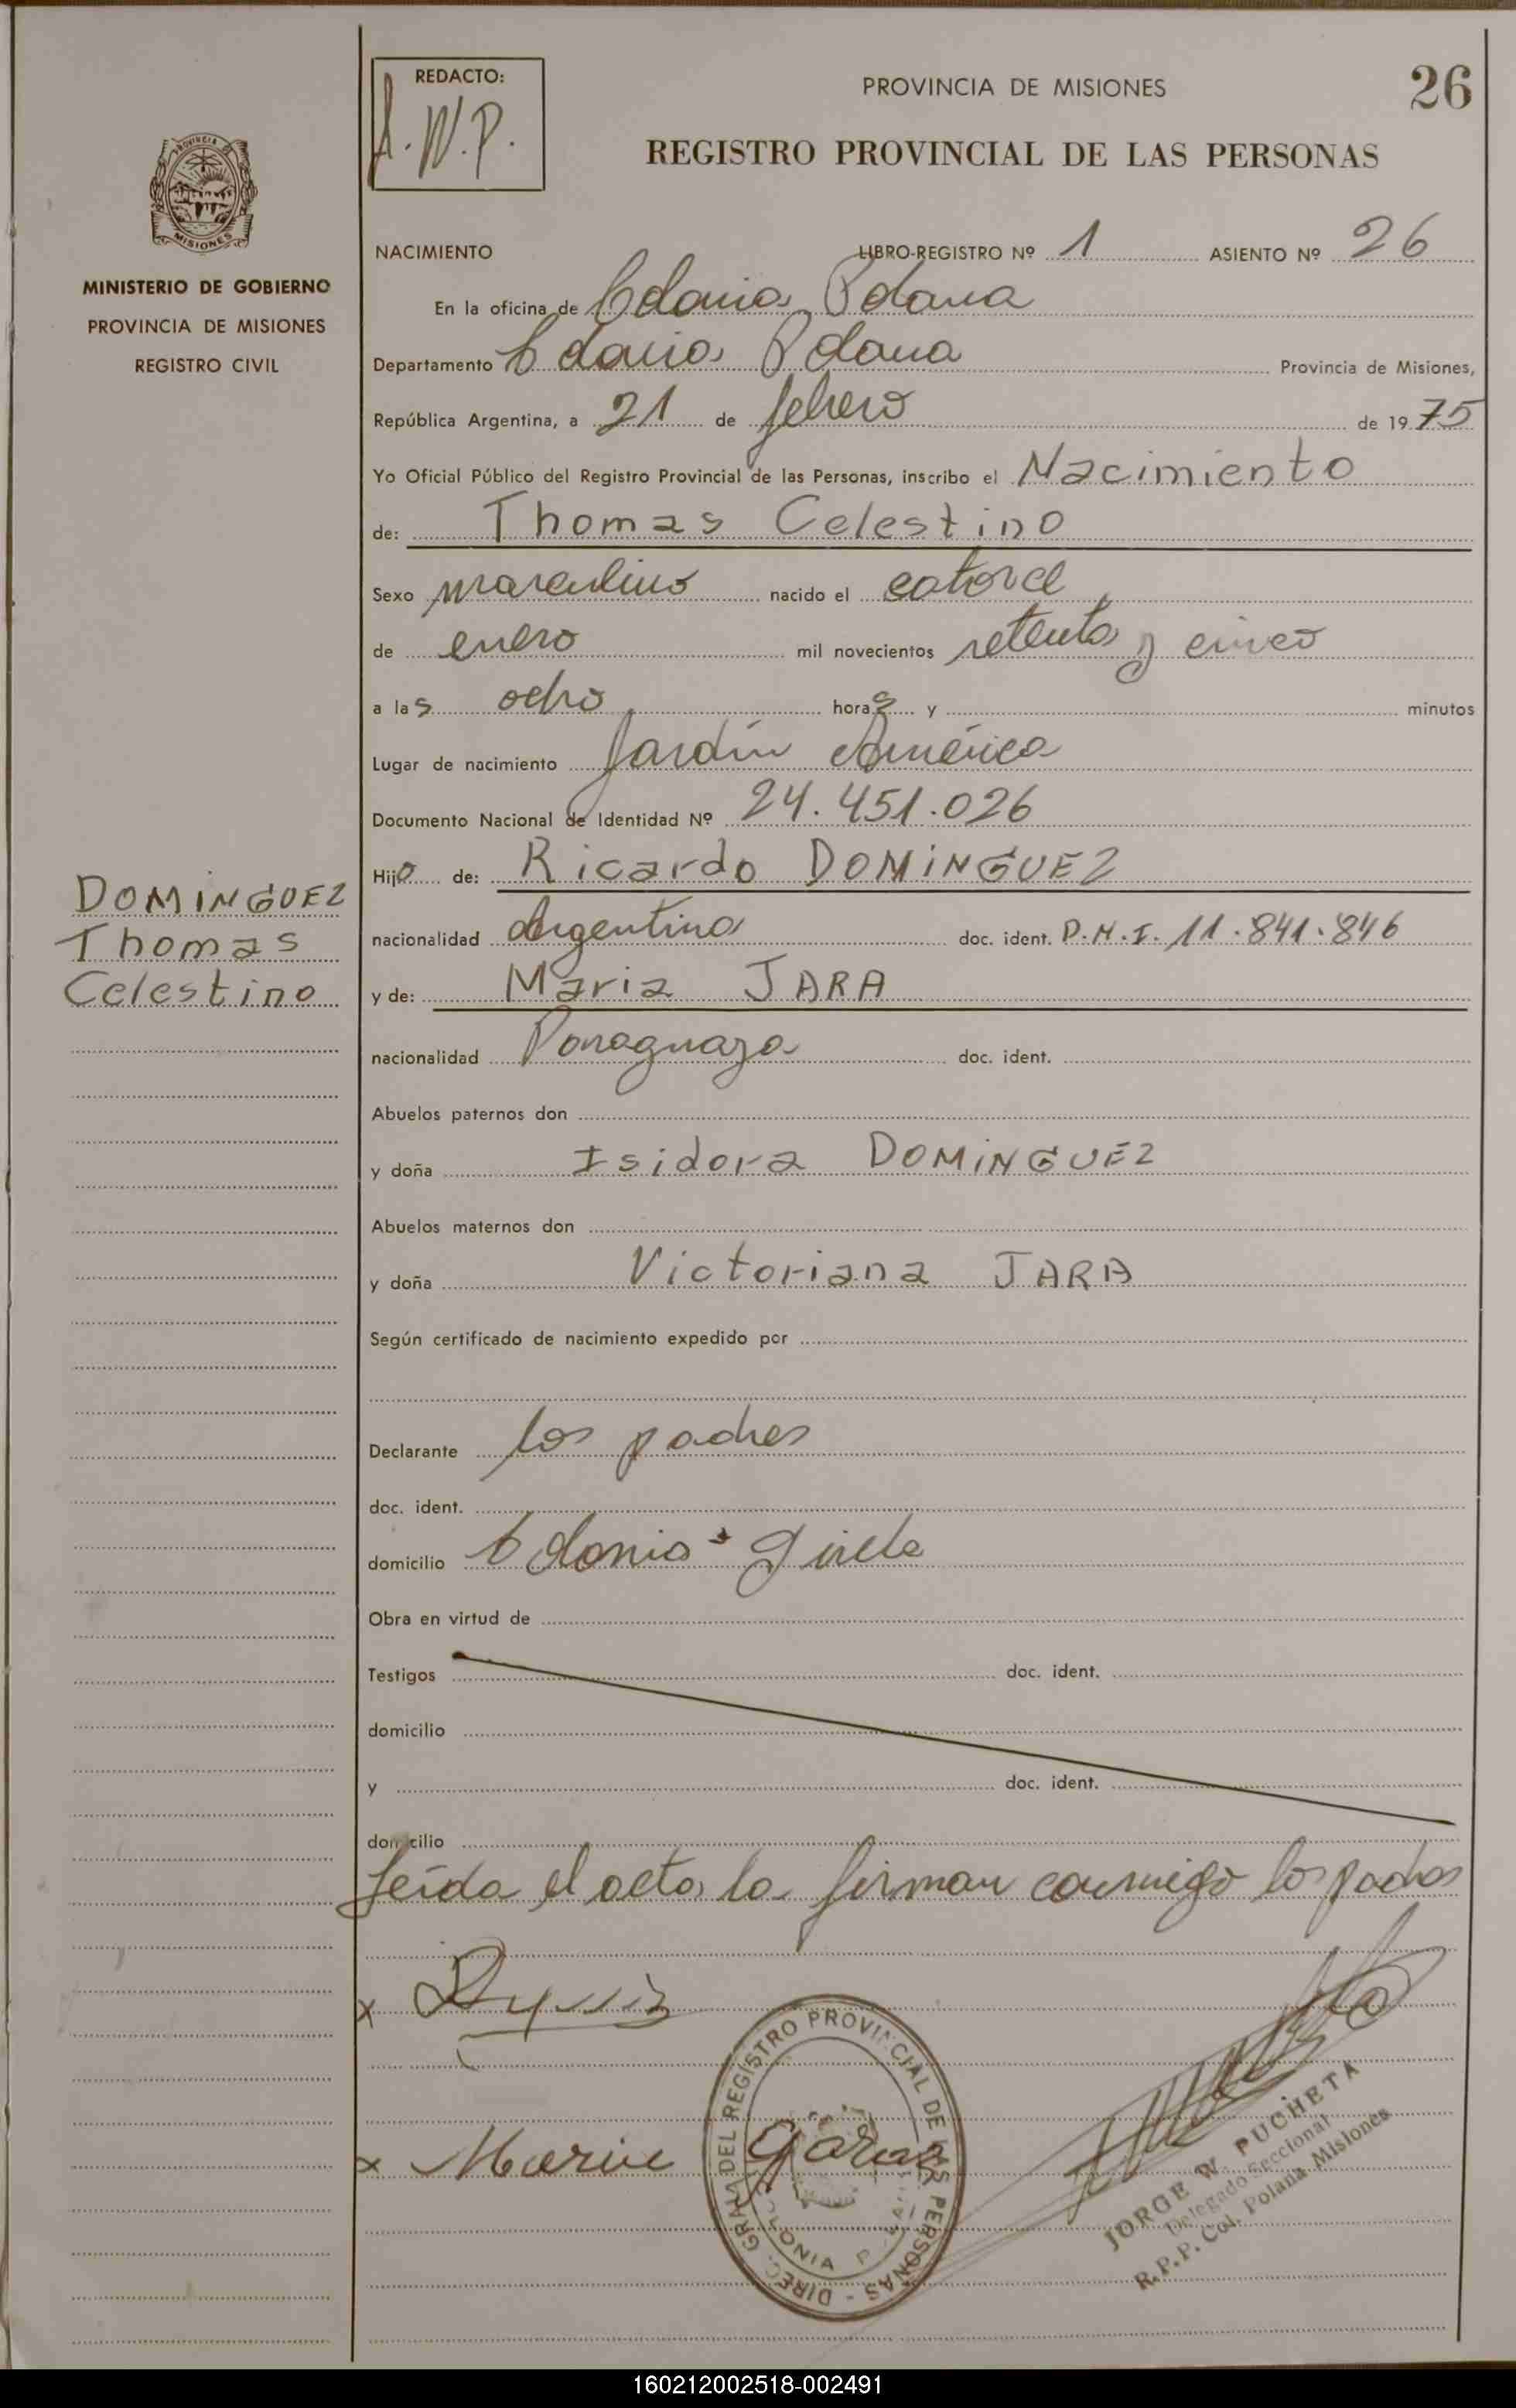 REDACTO:
A.W.P.
PROVINCIA DE MISIONES
26
REGISTRO PROVINCIAL DE LAS PERSONAS
PROVINCIA DE
MISIONES
MINISTERIO DE GOBIERNO
PROVINCIA DE MISIONES
REGISTRO CIVIL
NACIMIENTO LIBRO-REGISTRO Nº 1 ASIENTO Nº 26
En la oficina de Colonia Polana
Departamento Colonia Polana Provincia de Misiones,
República Argentina, a 21 de febrero de 1975
Yo Oficial Público del Registro Provincial de las Personas, inscribo el Nacimiento
de: Thomas Celestino
Sexo masculino nacido el catorce
de enero mil novecientos setenta y cinco
a las ocho horas y minutos
Lugar de nacimiento Jardín América
Documento Nacional de Identidad Nº 24.451.026
Hijo de: Ricardo DOMINGUEZ
DOMINGUEZ
Thomas
Celestino
nacionalidad Argentina doc. ident. D.N.I. 11.841.846
y de: Maria JARA
nacionalidad Paraguaya doc. ident.
Abuelos paternos don
y doña Isidora DOMINGUEZ
Abuelos maternos don
y doña Victoriana JARA
Según certificado de nacimiento expedido por
Declarante los padres
doc. ident.
domicilio Colonia
Obra en virtud de
Testigos doc. ident.
domicilio
y doc. ident.
domicilio
Leída el acta la firman conmigo los padres
x
x Maria Jara
DIREC. GRAL. DEL REGISTRO PROVINCIAL DE LAS PERSONAS -
COLONIA POLANA
JORGE W. PUCHETA
Delegado Seccional
R.P.P. Col. Polana Misiones
160212002518-002491